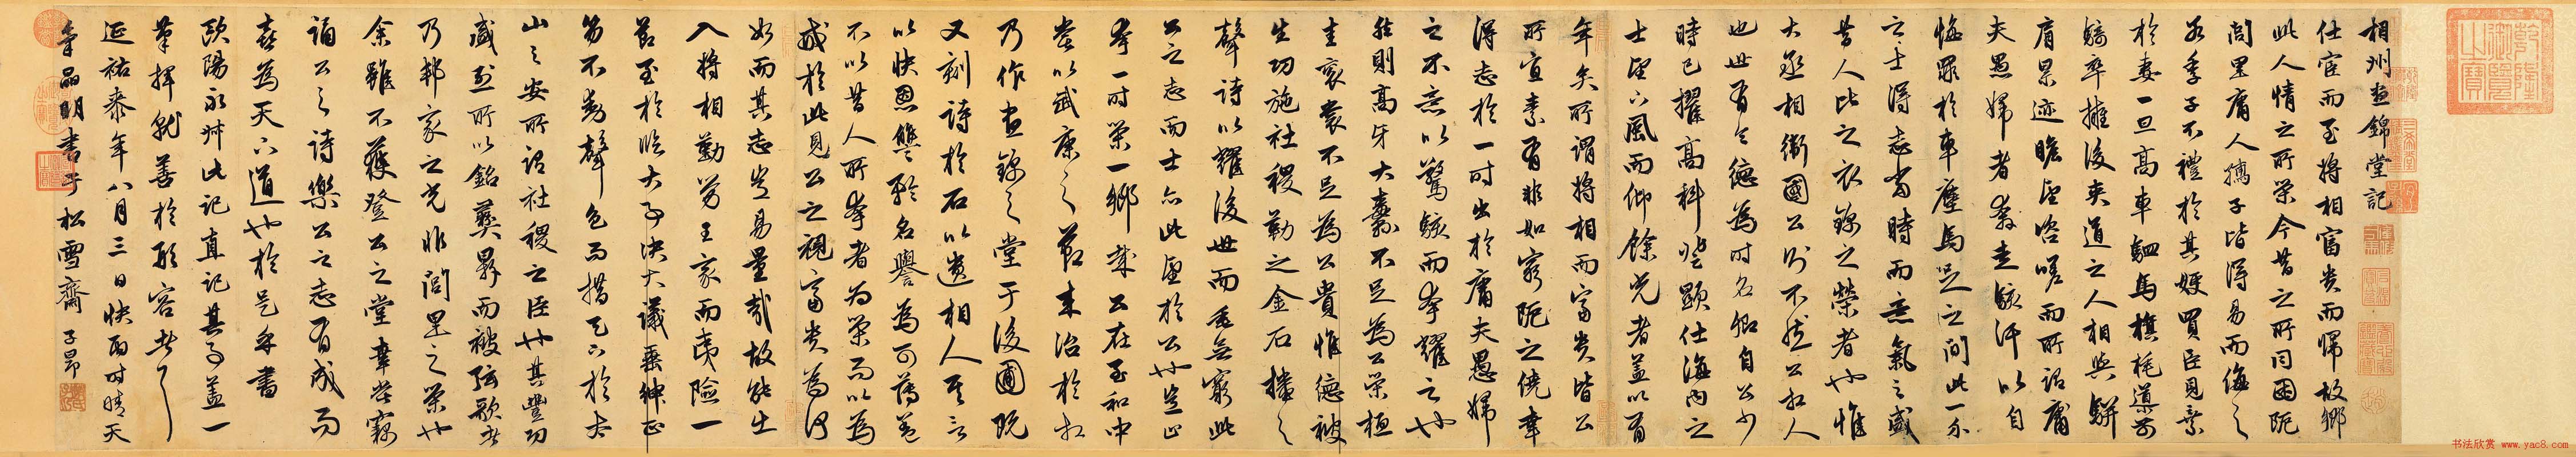 乾隆御覽之寶
相州晝錦堂記
仕宦而至將相富貴而歸故鄉
此人情之所榮今昔之所同困阨
閭里庸人孺子皆得易而侮之
若季子不禮於其嫂買臣見棄
於妻一旦高車駟馬旗旄導前
騎卒擁後夾道之人相與駢
肩累迹瞻望咨嗟而所謂庸
夫愚婦者奔走駭汗以自
悔罪於車塵馬足之間此一介
之士得志當時而意氣之盛
昔人比之衣錦之榮者也惟
大丞相衛國公則不然公相人
也世有令德為時名卿自公少
時已擢高科登顯仕海內之
士望下風而仰餘光者蓋以有
年矣所謂將相而富貴皆公
所宜素有非如窮阨之僥幸
得志於一時出於庸夫愚婦
之不意以驚駭而夸耀之也
然則高牙大纛不足為公榮桓
圭袞裳不足為公貴惟德被
生功施社稷勒之金石播之
聲詩以耀後世而垂無窮此
公之志而士亦此望於公也豈止
夸一時榮一鄉哉公在至和中
嘗以武康之節來治於相
乃作晝錦之堂于後圃既
又刻詩於石以遺相人其言
以快恩讎矜名譽為可薄蓋
不以昔人所夸者為榮而以為
戒於此見公之視富貴為何
如而其志豈易量哉故能出
入將相勤勞王家而夷險一
節至於臨大事決大議垂紳正
笏不動聲色而措天下於太
山之安所謂社稷之臣也其豐功
盛烈所以銘彝鼎而被弦歌者
乃邦家之光非閭里之榮也
余雖不獲登公之堂幸嘗竊
誦公之詩樂公之志有成而
喜為天下道也於是乎書
歐陽永叔此記直記其事蓋一
筆揮就善於形容者
延祐柒年八月三日快雨時晴天
氣晶明書于松雪齋 子昂
书法欣赏 www.yac8.com